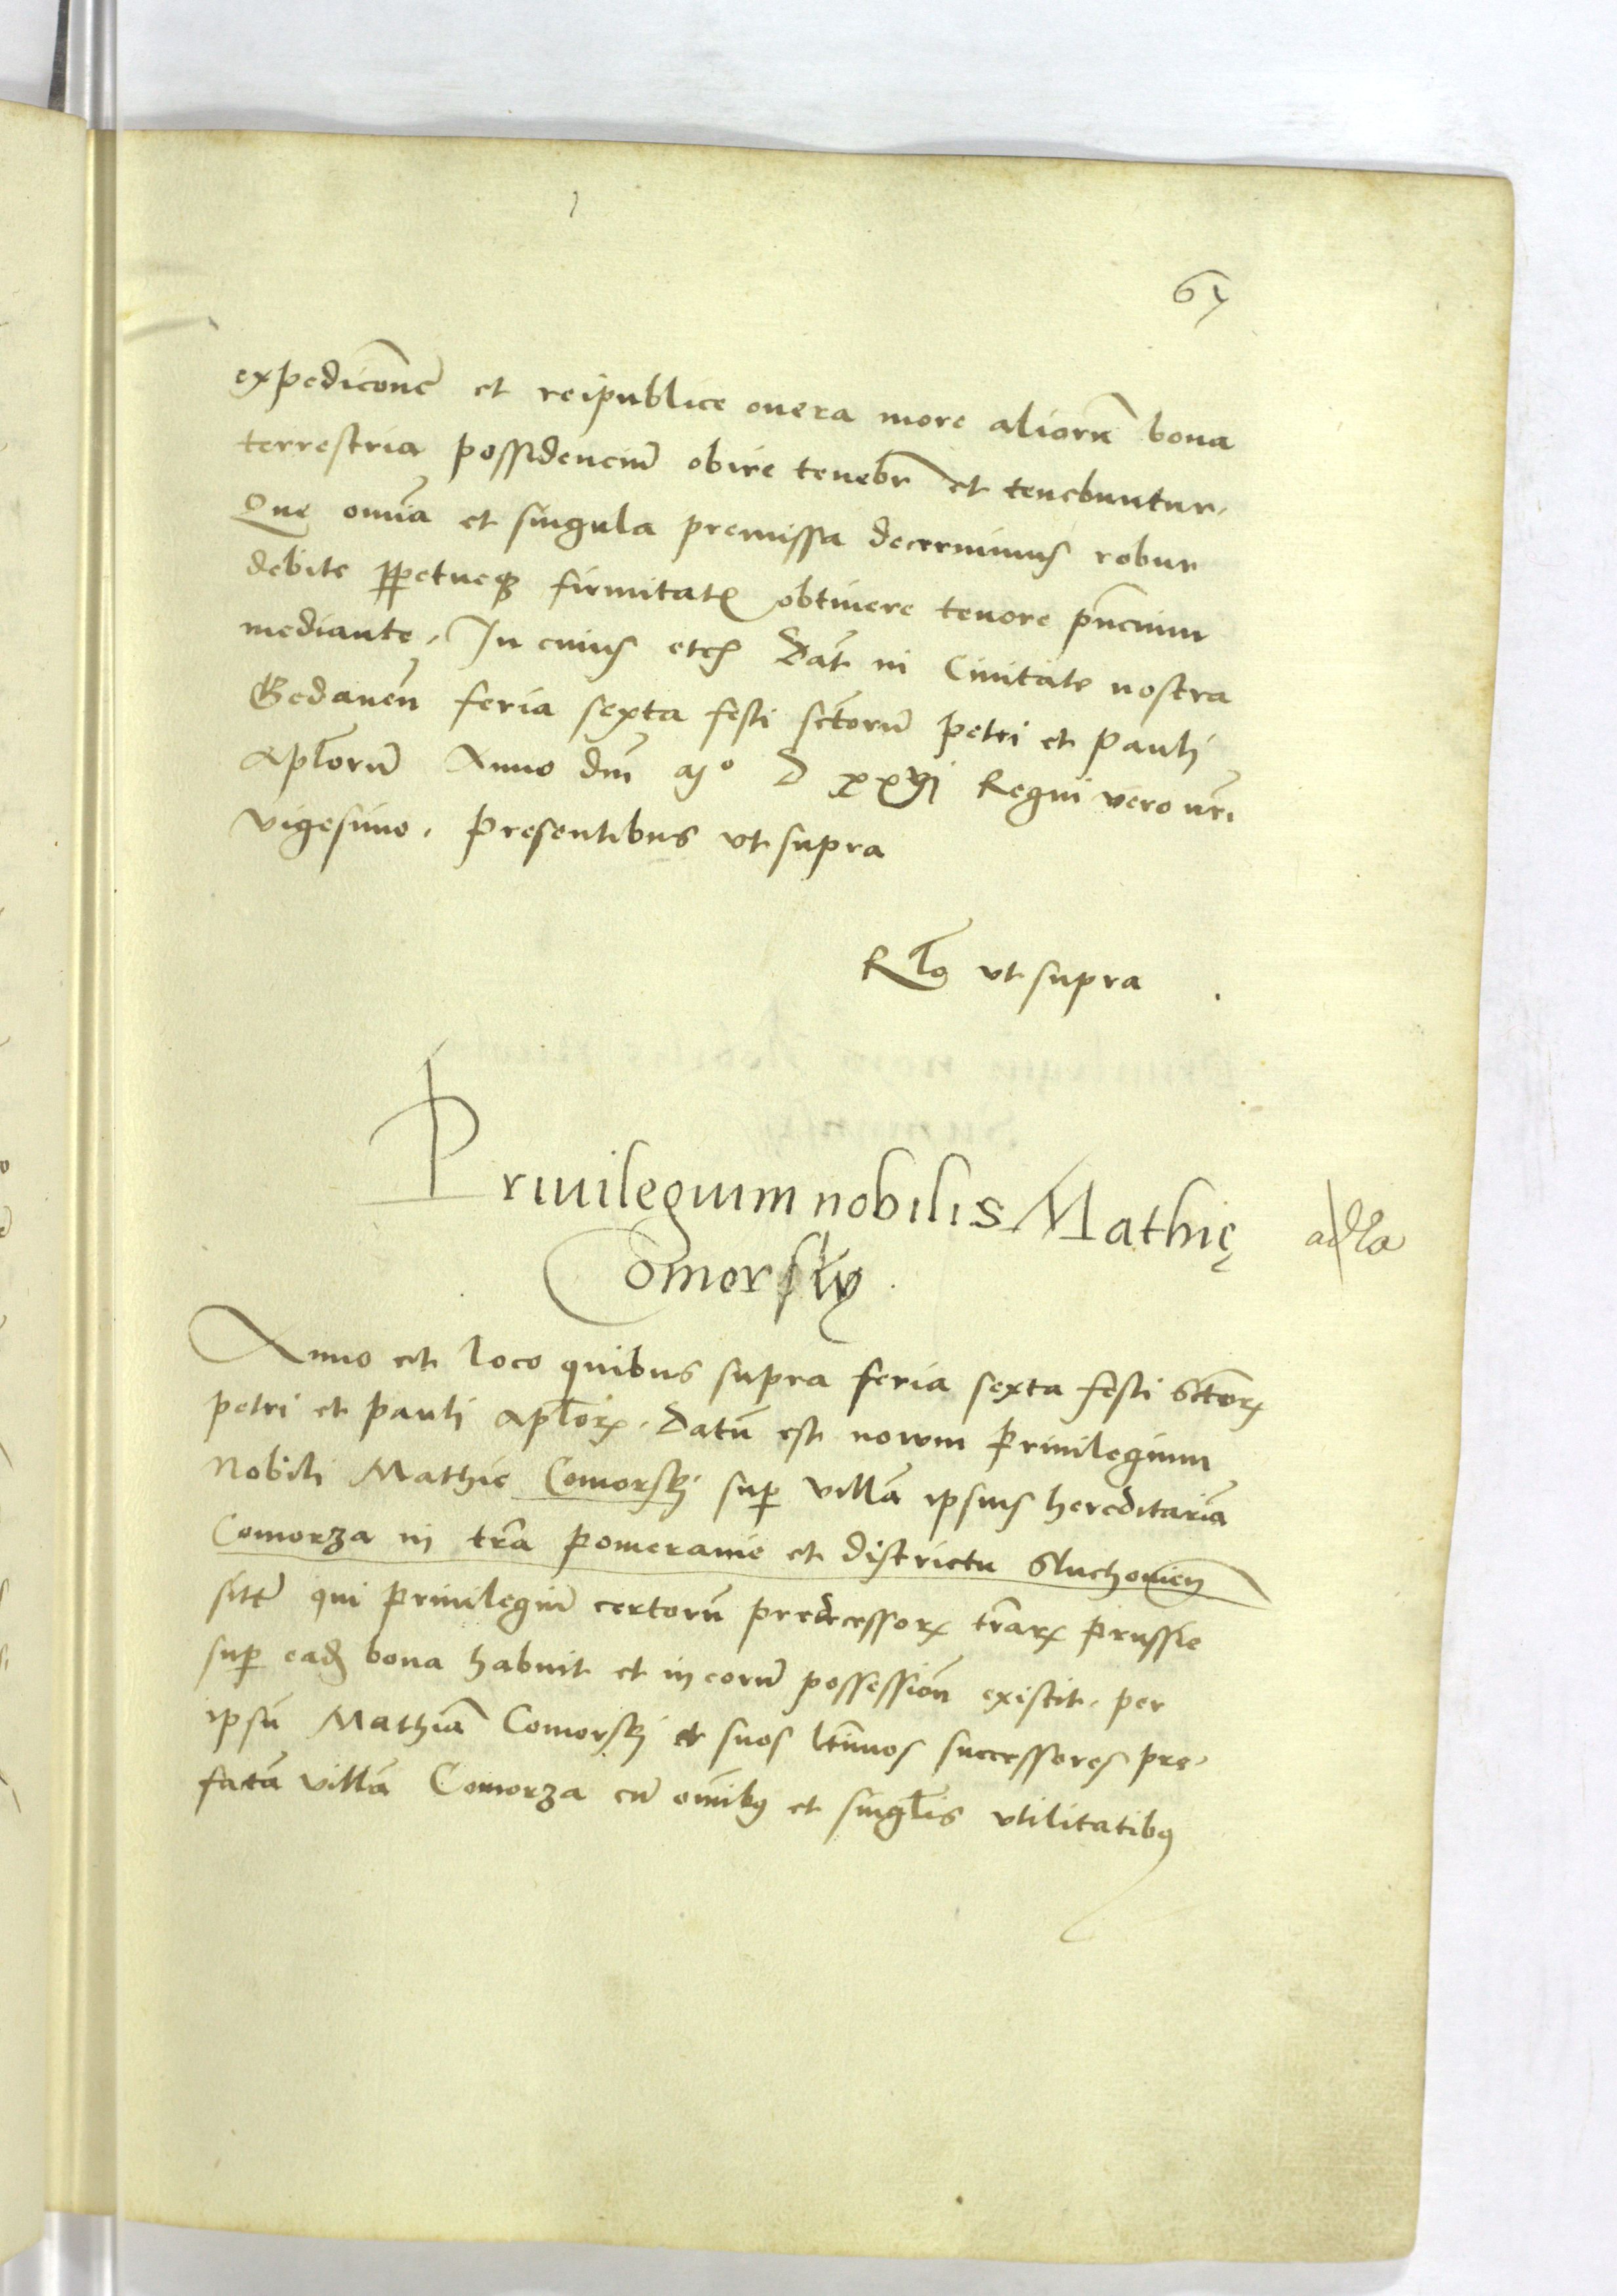 67
expedicone et reipublice onera more aliorũ bona
terrestria possidenciũ obire tenebr̃ et tenebuntur.
Que om̃ia et singula premissa decernimus robur
debite ꝑpetueqꝫ firmitatꝭ obtinere tenore pñcium
mediante. In cuius etcꝭ Dat̃ in Ciuitate nostra
Gedaneñ feria sexta festi sctorũ Petri et Pauli
Apl̃orũ Anno dñi Mº D xxvj Regni vero nr̃i
vigesimo. Presentibus vt supra
Rl̃o vt supra
Priuilegium nobilis Mathię
Comorsky
adla
Anno et loco quibus supra feria sexta festi Sctorꝝ
Petri et Pauli Apl̃orꝝ. Datũ est nowm Priuilegium
Nobili Mathie Comorskj suꝑ villã ipsius hereditariã
Comorza in tr̃a Pomeranie et districtu Sluchowieñ
sitꝭ qui Priuilegiũ certorũ predecessorꝝ tr̃arꝝ Prussie
suꝑ eadꝭ bona habuit et in eorũ possession̄ existit. per
ipsũ Mathiã Comorskj et suos ltĩmos successores pre-
fatã villã Comorza cũ om̃ibꝰ et singl̃is vtilitatibꝰ